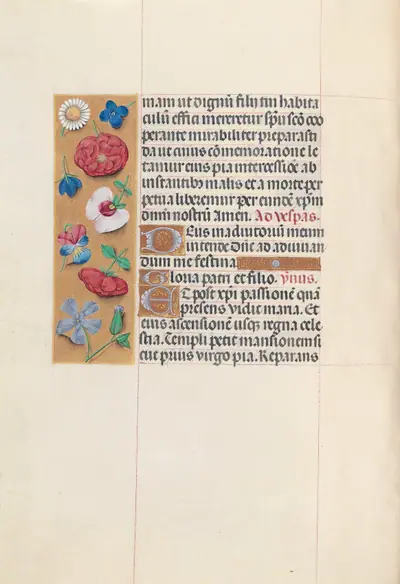 mam ut dignũ filij tui habita
culũ effici mereretur spũ scõ coo
perante mirabiliter preparasti
da ut cuius cõmemoratione le
tamur eius pia intercessiõe ab
instantibus malis et a morte per
petua liberemur per eundẽ xp̃m
dñm nostrũ Amen. Ad vesp̃as.
Deus in adiutoriũ meum
intende Dñe ad adiuuan
dum me festina
Gloria patri et filio. ỹnus.
Et post xp̃i passionẽ quã
presens vidit maria. Et
eius ascensionẽ usq; regna cele
stia. Templi petit mansionem si
cut prius virgo pia. Reparans